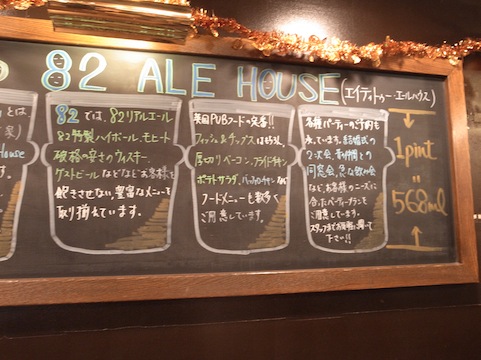 82 ALE HOUSE (エイティトゥー・エールハウス)
とは
泉)
House
82では、82リアルエール
82特製ハイボール、モヒート
破格の安さのウィスキー、
ゲストビールなどなどお客様を
飽きさせない、豊富なメニューを
取り揃えています。
英国PUBフードの定番!!
フィッシュ&チップスはもちろん、
厚切りベーコン、フライドチキン
ポテトサラダ、
フードメニューも数多く
ご用意しています。
各種パーティーのご予約も
承っています。結婚式の
2次会、お仲間との
同窓会、急な飲み会
などなど、お客様のニーズに
合ったパーティープランを
ご用意しています。
スタッフまでお気軽に
下さい!!
1pint
=
568ml